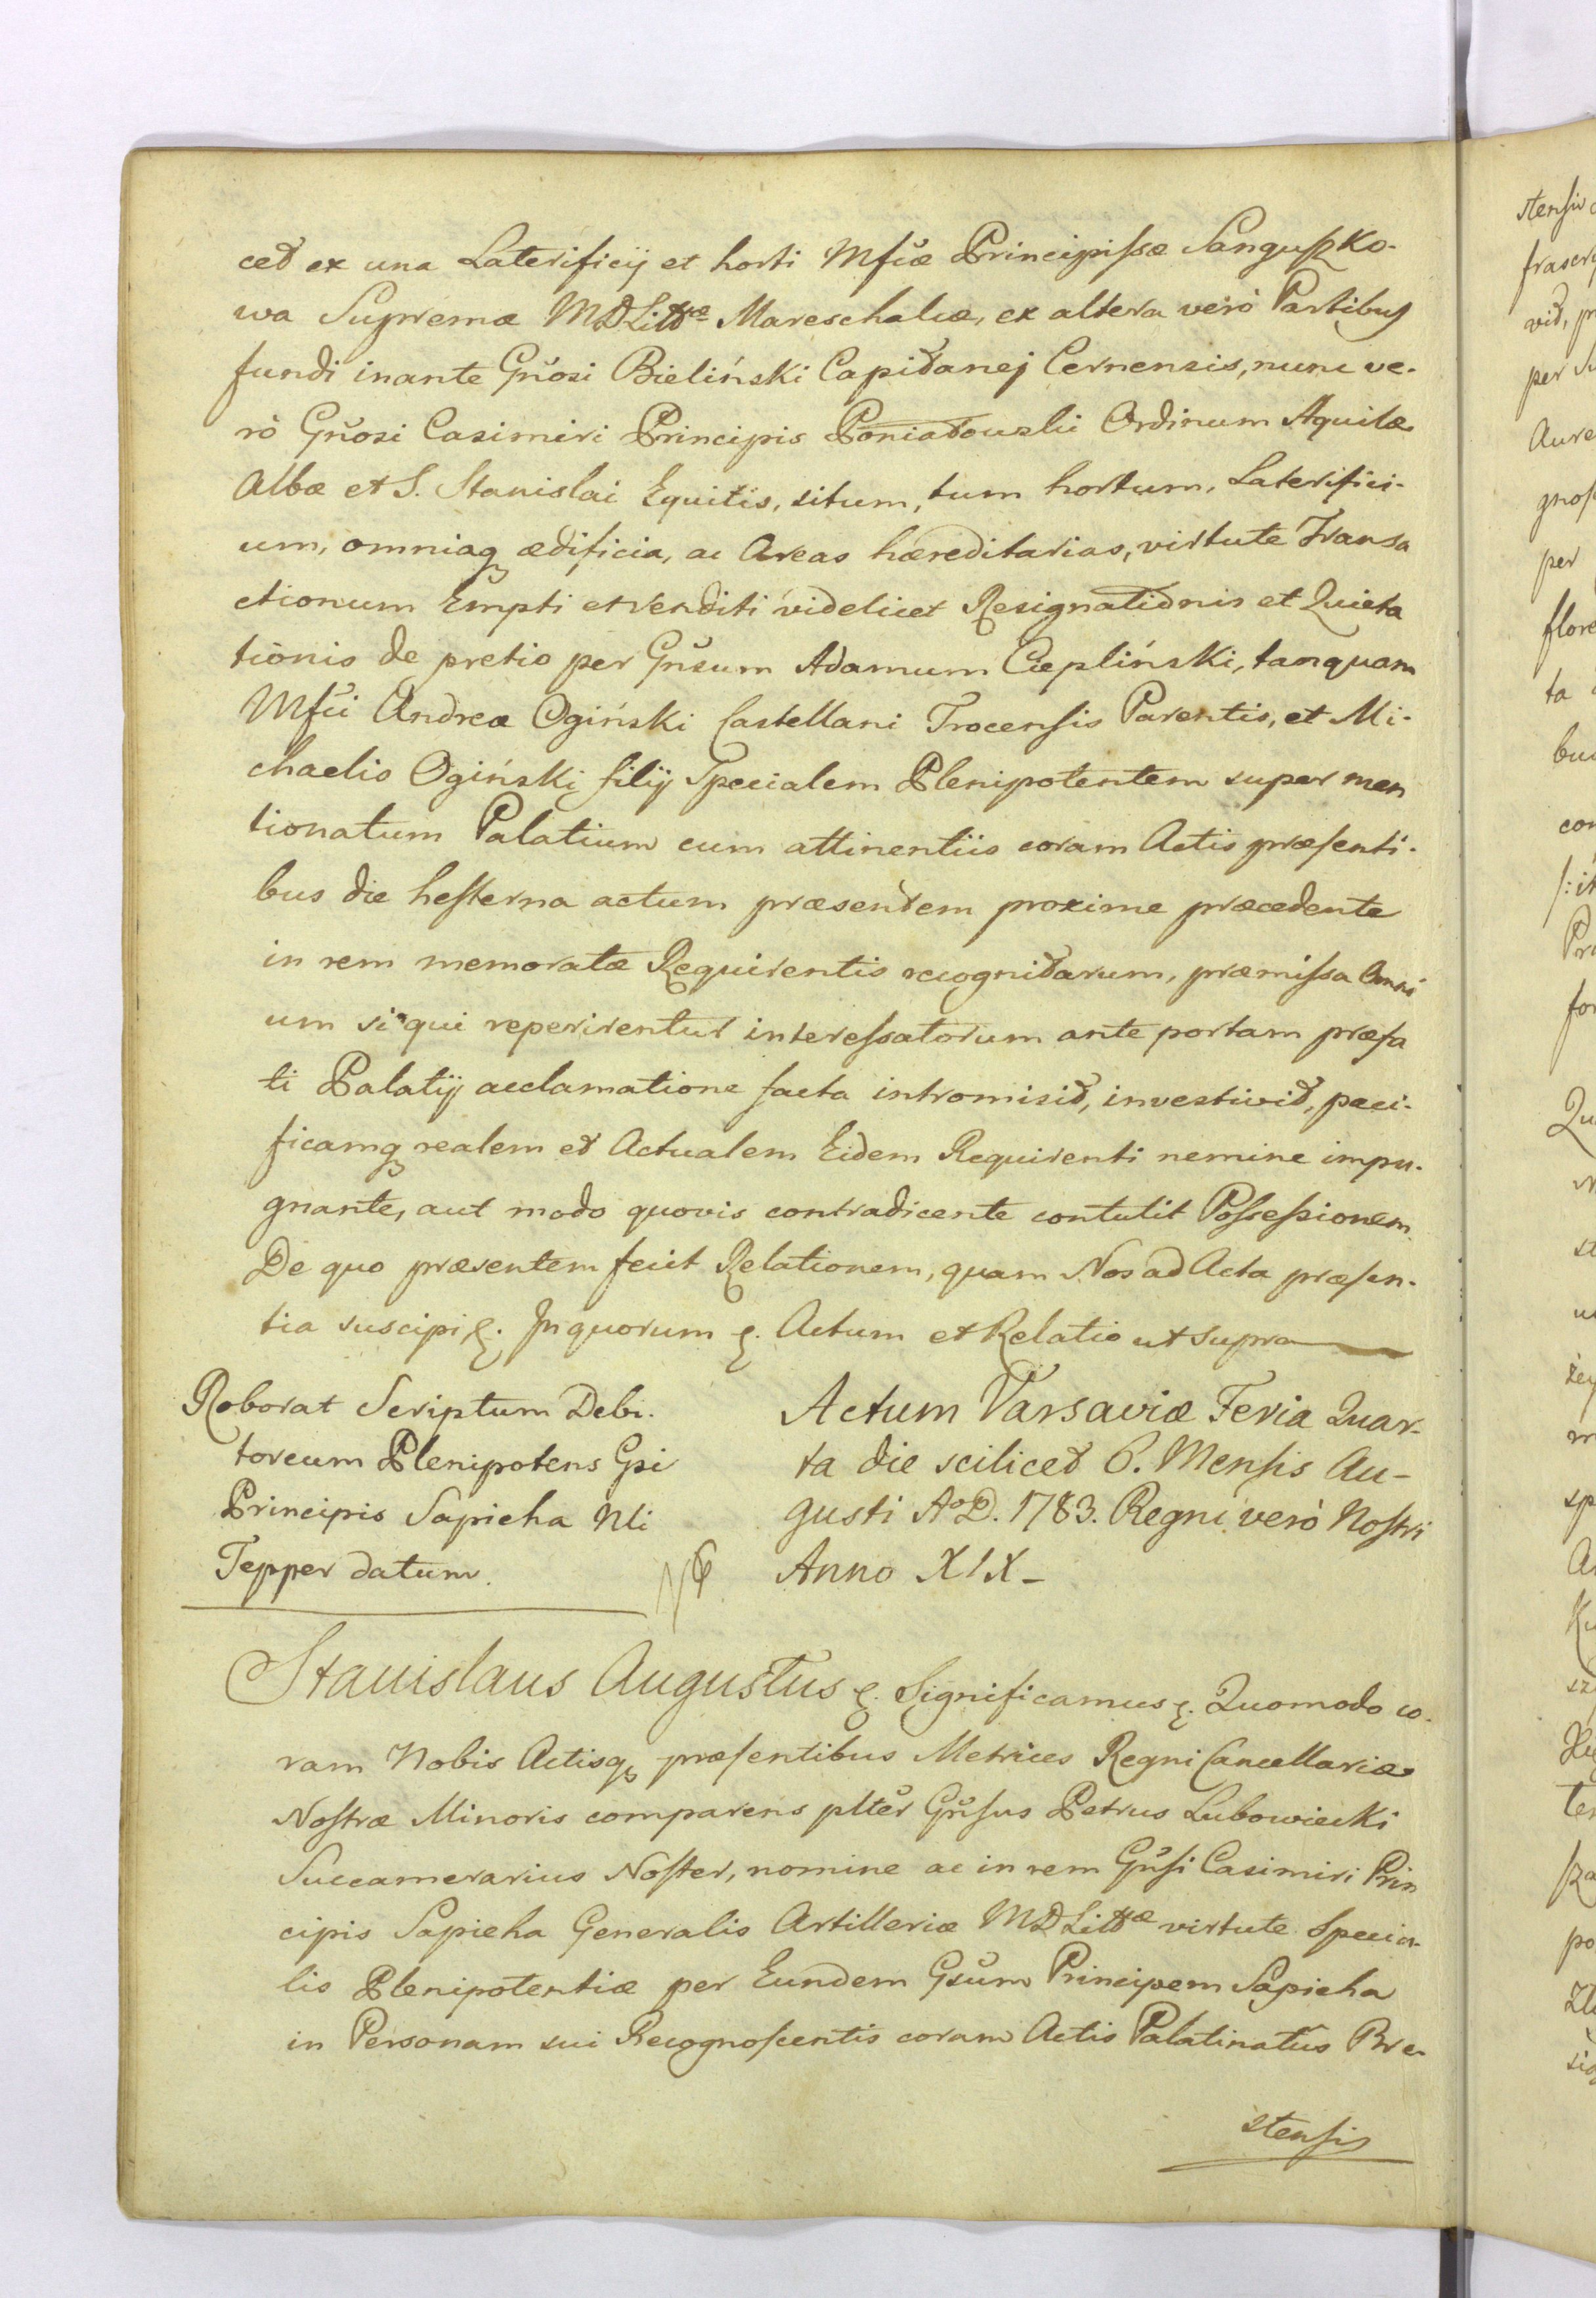 cet ex una Laterificij et horti Mfcæ Principissæ Sanguszko-
wa Supremæ MDLittæ Mareschalcæ, ex altera verò Partibus
fundi inante Gnosi Bieliński Capitanej Cernensis, nunc ve-
rò Gnosi Casimiri Principis Poniatowski Ordinum Aquilæ
Albæ et S. Stanislai Equitis, situm, tum hortum, Laterifici-
um, omniaq ædificia, ac Areas hæreditarias, virtute Transa
ctionum Empti et Venditi videlicet Resignationis et Quieta
tionis de pretio per Gnsum Adamum Ciepliński, tanquam
Mfci Andreæ Ogiński Castellani Trocensis Parentis, et Mi-
chaelis Ogiński filij Specialem Plenipotentem super men
tionatum Palatium cum attinentiis coram Actis præsenti-
bus die hesterna actum præsentem proxime præcedente
in rem memoratæ Requirentis recognitarum, præmissa Omni
um si qui reperirentur interessatorum ante portam præfa
ti Palatij acclamatione facta intromisit, investivit, paci-
ficamq realem et Actualem Eidem Requirenti nemine impu-
gnante, aut modo quovis contradicente contulit Possessionem.
De quo præsentem fecit Relationem, quam Nos ad Acta præsen-
tia suscipi &. In quorum &. Actum et Relatio ut supra
Roborat Scriptum Debi-
toreum Plenipotens Gsi
Principis Sapieha Nli
Tepper datum.
Actum Varsaviæ Feria Quar-
ta die scilicet 6. Mensis Au-
gusti AoD. 1783. Regni verò Nostri
Anno XIX-
Stanislaus Augustus &. Significamus &. Quomodo co-
ram Nobis Actisq præsentibus Metrices Regni Cancellariæ
Nostræ Minoris comparens plter Gnsus Petrus Lubowiecki
Succamerarius Noster, nomine ac in rem Gnsi Casimiri Prin
cipis Sapieha Generalis Artilleriæ MDLittæ virtute specia-
lis Plenipotentiæ per Eundem Gsum Principem Sapieha
in Personam sui Recognoscentis coram Actis Palatinatûs Bre-
stensis